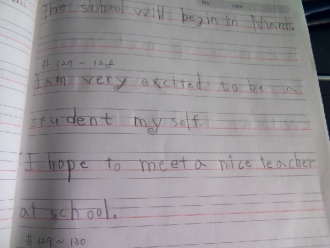 The school will begin in March.
# 127 ~ 128
I am very excited to be a
student my self.
I hope to meet a nice teacher
at school.
# 129 ~ 130